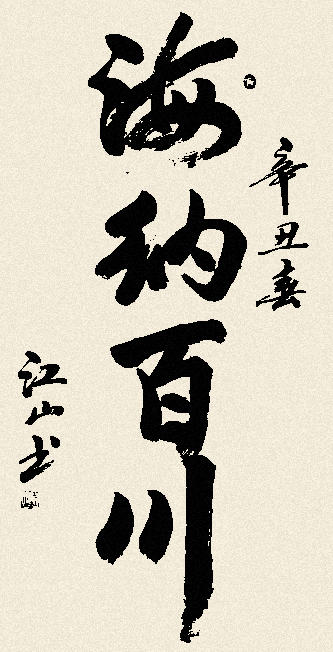 辛丑春
海纳百川
江山书